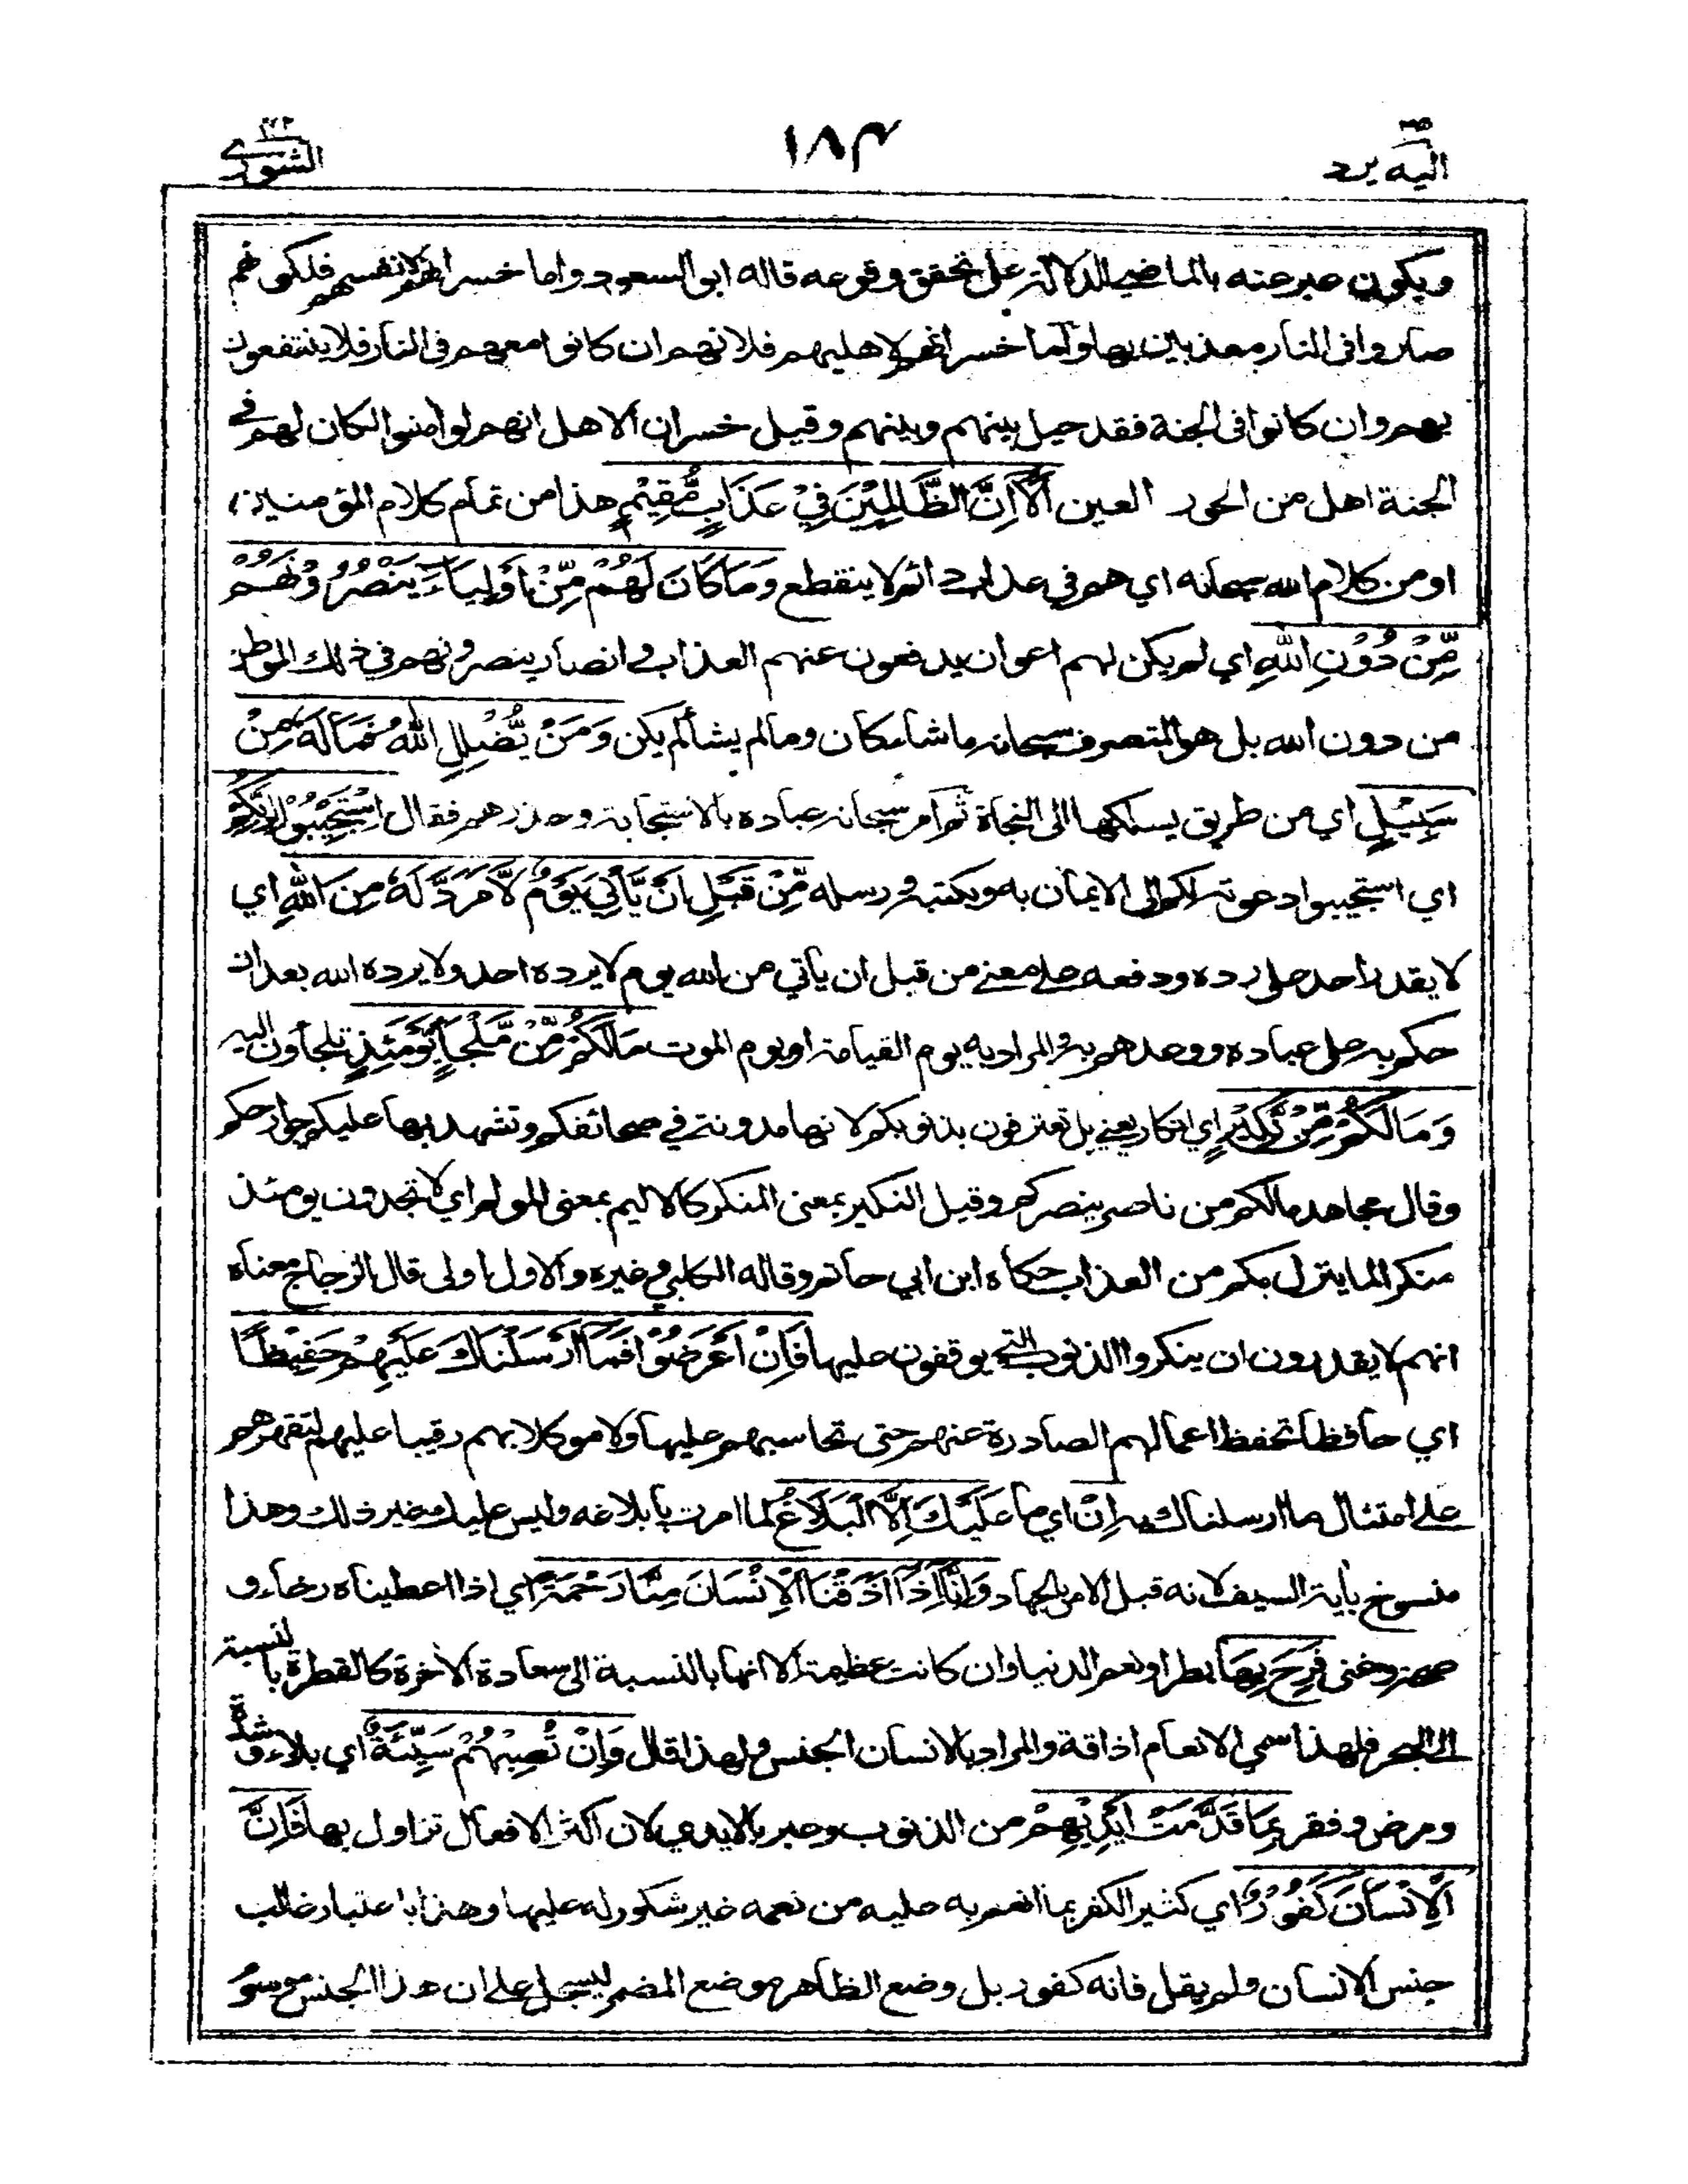 ٢٥
اليه يرد
١٨٣
٤٢
الشورى
ويكون عبر عنه بالماضي للدلالة على تحقق وقوعه قاله ابو السعود واما خسرانهم لانفسهم فلكونهم
صاروا في النار معذبين بها واما خسرانهم لاهليهم فلانهم ان كانوا معهم في النار فلا ينتفعون
بهم وان كانوا في الجنة فقد حيل بينهم وبينهم وقيل خسران الاهل انهم لو امنوا لكان لهم في
الجنة اهل من الحور العين اَلَآ اِنَّ الظّٰلِمِيْنَ فِيْ عَذَابٍ مُّقِيْمٍ هذا من تمام كلام المؤمنين
او من كلام الله سبحانه اي هم في عذاب دائم لا ينقطع وَمَا كَانَ لَهُمْ مِّنْ اَوْلِيَآءَ يَنْصُرُوْنَهُمْ
مِّنْ دُوْنِ اللّٰهِ اي لم يكن لهم اعوان يدفعون عنهم العذاب وانصار ينصرونهم في ذلك الموطن
من دون الله بل هو المتصرف سبحانه ما شاء كان وما لم يشأ لم يكن وَمَنْ يُّضْلِلِ اللّٰهُ فَمَا لَهٗ مِنْ
سَبِيْلٍ اي من طريق يسلكها الى النجاة ثم امر سبحانه عباده بالاستجابة وحذرهم فقال اسْتَجِيْبُوْا لِرَبِّكُمْ
اي استجيبوا دعوته لكم الى الايمان به وبكتبه ورسله مِّنْ قَبْلِ اَنْ يَّأْتِيَ يَوْمٌ لَّا مَرَدَّ لَهٗ مِنَ اللّٰهِ اي
لا يقدر احد على رده ودفعه على معنى من قبل ان يأتي من الله يوم لا يرده احد ولا يرده الله بعد ان
حكم به على عباده ووعدهم به والمراد به يوم القيامة او يوم الموت مَا لَكُمْ مِّنْ مَّلْجَأٍ يَّوْمَئِذٍ تلجأون اليه
وَمَا لَكُمْ مِّنْ نَّكِيْرٍ اي انكار يعني بل تعترفون بذنوبكم لانها مدونة في صحائفكم وتشهد بها عليكم جوارحكم
وقال مجاهد مالكم من ناصر ينصركم وقيل النكير بمعنى المنكر كالاليم بمعنى المولم اي لا تجدون يومئذ
منكرا لما ينزل بكم من العذاب حكاه ابن ابي حاتم وقاله الكلبي وغيره والاول اولى قال الزجاج معناه
انهم لا يقدرون ان ينكروا الذنوب التي يوقفون عليها فَاِنْ اَعْرَضُوْا فَمَآ اَرْسَلْنٰكَ عَلَيْهِمْ حَفِيْظًا
اي حافظا تحفظ اعمالهم الصادرة عنهم حتى تحاسبهم عليها ولا موكلا بهم رقيبا عليهم لتقهرهم
على امتثال ما ارسلناك به اِنْ اي ما عَلَيْكَ اِلَّا الْبَلَاغُ لما امرت بابلاغه وليس عليك غير ذلك وهذا
منسوخ بأية السيف لانه قبل الامر بالجهاد وَاِنَّآ اِذَآ اَذَقْنَا الْاِنْسَانَ مِنَّا رَحْمَةً اي اذا اعطيناه رخاء و
صحة وغنى فَرِحَ بِهَا بطرا ونعم الدنيا وان كانت عظيمة الا انها بالنسبة الى سعادة الاخرة كالقطرة بالنسبة
الى البحر فلهذا سمي الانعام اذاقة والمراد بالانسان الجنس ولهذا قال وَاِنْ تُصِبْهُمْ سَيِّئَةٌ اي بلاء وشدة
ومرض وفقر بِمَا قَدَّمَتْ اَيْدِيْهِمْ من الذنوب وعبر بالايدي لان اكثر الافعال تزاول بها فَاِنَّ
الْاِنْسَانَ كَفُوْرٌ اي كثير الكفر بما انعم به عليه من نعمه غير شكور له عليها وهذا باعتبار غالب
جنس الانسان ولم يقل فانه كفور بل وضع الظاهر موضع المضمر ليسجل على ان هذا الجنس موسوم